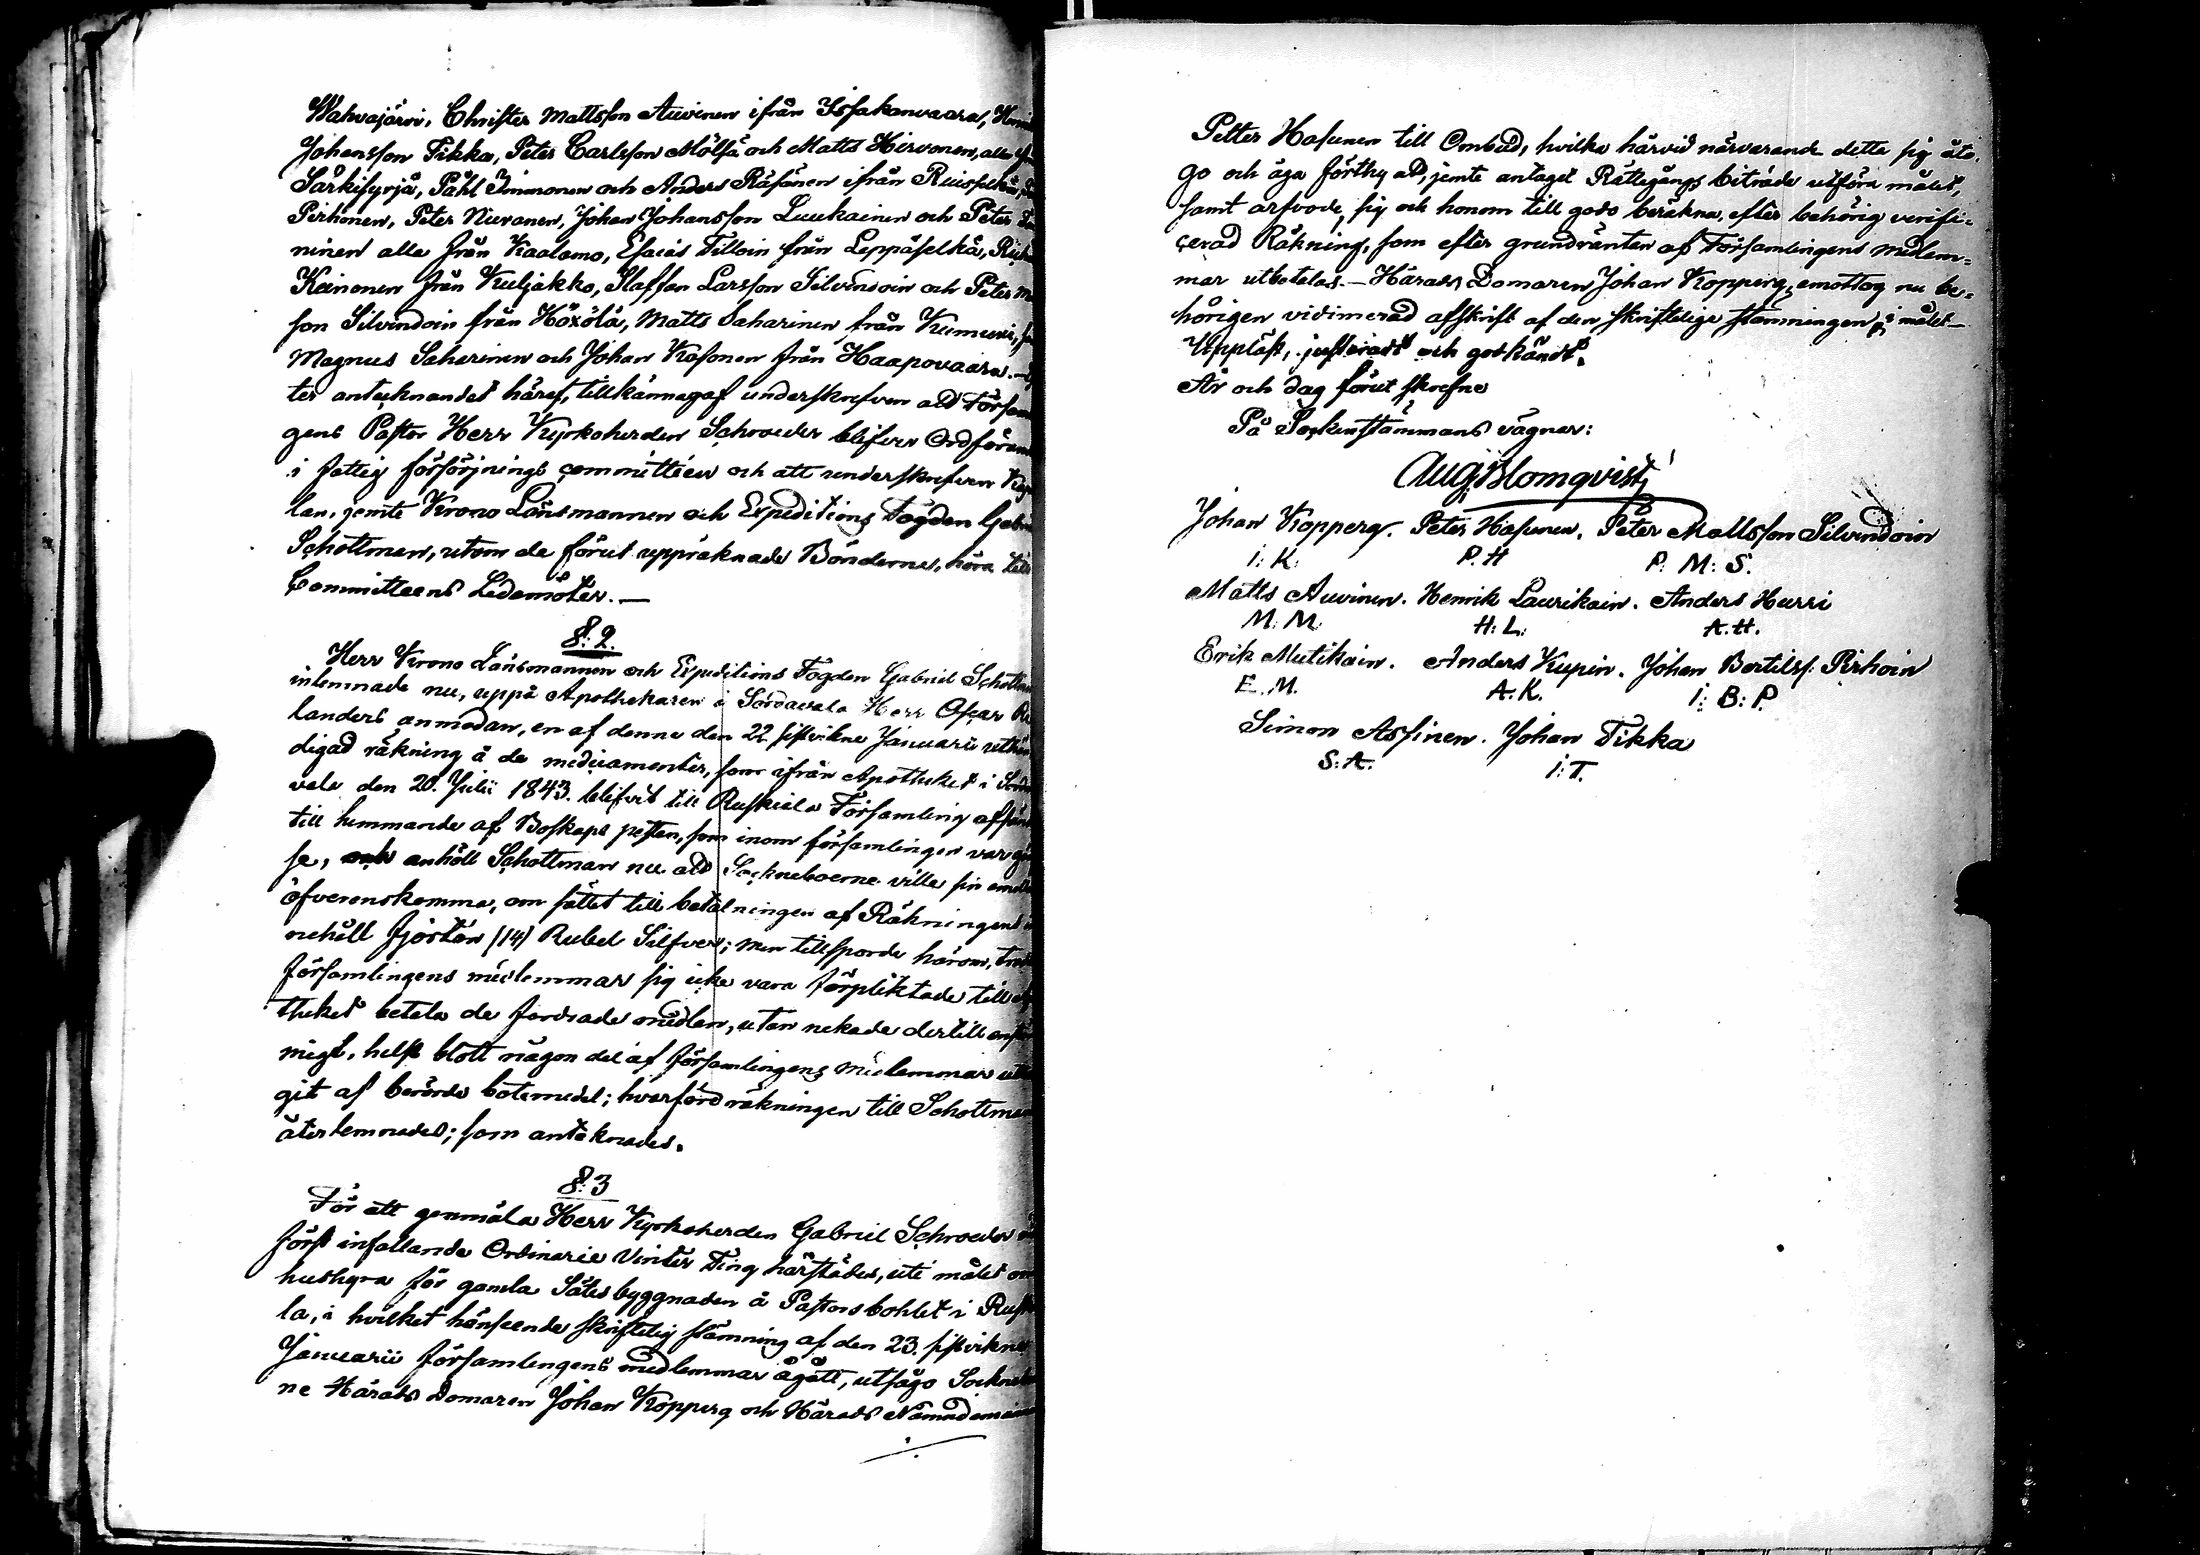 Wahvajärvi, Christer Mattsson Auvinen ifrån Issakanvaara,
Johansson Tikka, Peter Carlsson Mölsä och Matts Hirvonen, alla
Särkisyrjä, Påhl Immonen och Anders Räsänen ifrån Ruisselkä,
Pirhonen, Peter Nuvanen, Johan Johansson Luukainen och Peter
ninen alla från Kaalamo, Esaias Tilloin från Leppäselkä,
Kainonen från Kuljakko, Staffan Larsson Silvindoin och Peter
son Silvindoin från Höxölä, Matts Saharinen från Kumuri,
Magnus Saharinen och Johan Kosonen från Haapovaara.—
ter antecknandet häraf, tillkännagaf underskrefven att Försam
gens Pastor Herr Kyrkoherden Schroeder blifver Ordföran
i fattig försörjnings committéen och att underskrefven
lan, jemte Krono Länsmannen och Expeditions Fogden
Schottman, utom de förut uppräknade Bönderne, höra till
Committeens Ledamöter.—
§: 2.
Herr Krono Länsmannen och Expeditions Fogden Gabriel Schottm
inlemnade nu, uppå Apothekaren i Sordavala Herr Oscar
landers anmodan, en af denne den 22 sistvikne Januarii
digad räkning å de medicamenter, som ifrån Apotheket i
vala den 20. Julii 1843. blifvit till Ruskiala Församling
till hemmande af Boskaps pesten, som inom församlingen var
se, och anhöll Schottman nu att Sockneboerne ville sin emell
öfverenskomma, om sättet till betalningen af Räkningens
nehåll fjorton (14) Rubel Silfver; men tillsporde härom,
församlingens medlemmar sig icke vara förpliktade till
theket betala de fordrade medlen, utan nekade dertill
migt, helst blott någon del af församlingens medlemmar
git af berörde botemedel; hvarföre räkningen till Schottman
återlemnades; som antecknades.
§: 3
För att genmäla Herr Kyrkoherden Gabriel Schroeder
först infallande Ordinarie Vinter Ting härstädes, uti målet om
hushyra för gamla Sätesbyggnaden å Pastorsbohlet i
la, i hvilket hänseende skriftelig stämning af den 23. sistvikne
Januarii församlingens medlemmar ågått, utsågo
ne Härads Domaren Johan Kopperg och Härads Nämndemannen
./.
Petter Hasunen till Ombud, hvilka härvid närvarande detta sig åto.
go och äga förthy att, jemte antaget Rättegångs biträde utföra målet,
samt arfvode sig och honom till godo beräkna, efter behörig verifi=
cerad Räkning, som efter grundräntan af Församlingens medlem=
mar utbetalas.— Härads Domaren Johan Kopperg, emottog nu be=
hörigen vidimerad afskrift af den skriftelige stämningen, i målet—
Uppläst, justeradt och godkändt.
År och dag förut skrefne
På Sockenstämmans vägnar:
Aug. Blomqvist
Johan Kopperg. Peter Hasunen. Peter Mattsson Silvindoin
I: K: P. H P: M: S.
Matts Auvinen. Henrik Laurikain. Anders Hurri
M: M. H: L: A. H.
Erik Mutikain. Anders Kupin. Johan Bertilss: Pirhoin
E. M. A. K. I: B: P.
Simon Assinen. Johan Tikka
S: A. I: T.